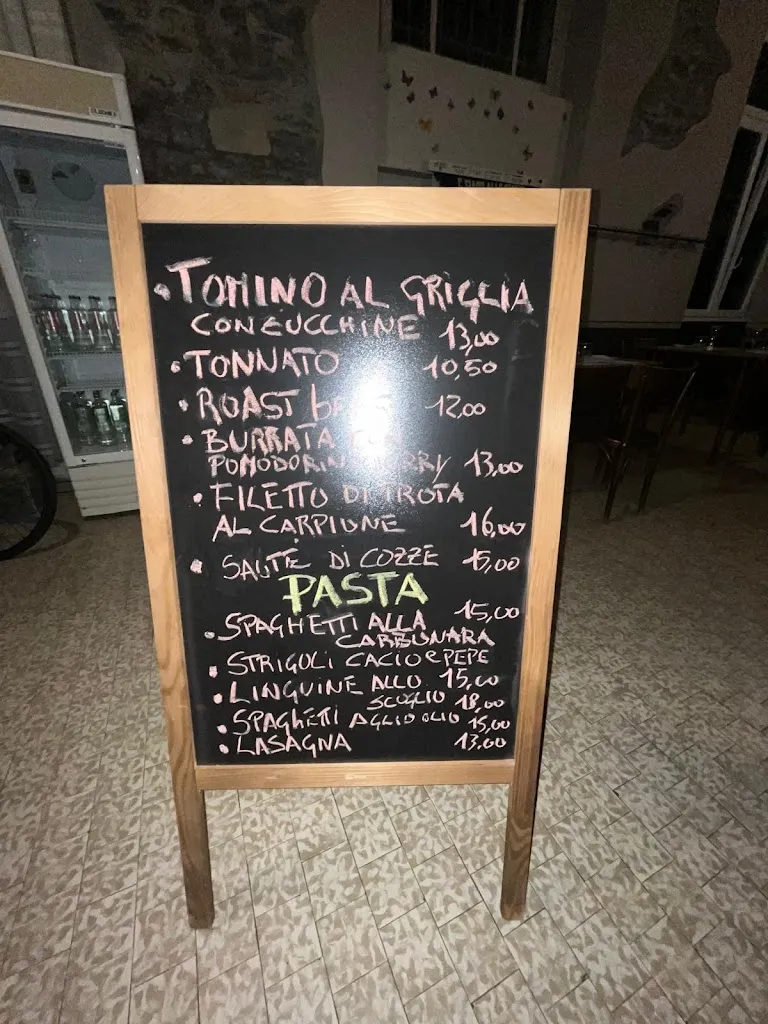 • TOMINO AL GRIGLIA
CON ZUCCHINE 13,00
• TONNATO 10,50
• ROAST 12,00
• BURRATA
POMODORINI 13,00
• FILETTO DI TROTA
AL CARPIONE 16,00
• SAUTE DI COZZE 15,00
PASTA
• SPAGHETTI ALLA 15,00
CARBONARA
• STRIGOLI CACIO e PEPE
• LINGUINE ALLO 15,00
SCOGLIO 18,00
• SPAGHETTI AGLIO OLIO 15,00
• LASAGNA 13,00